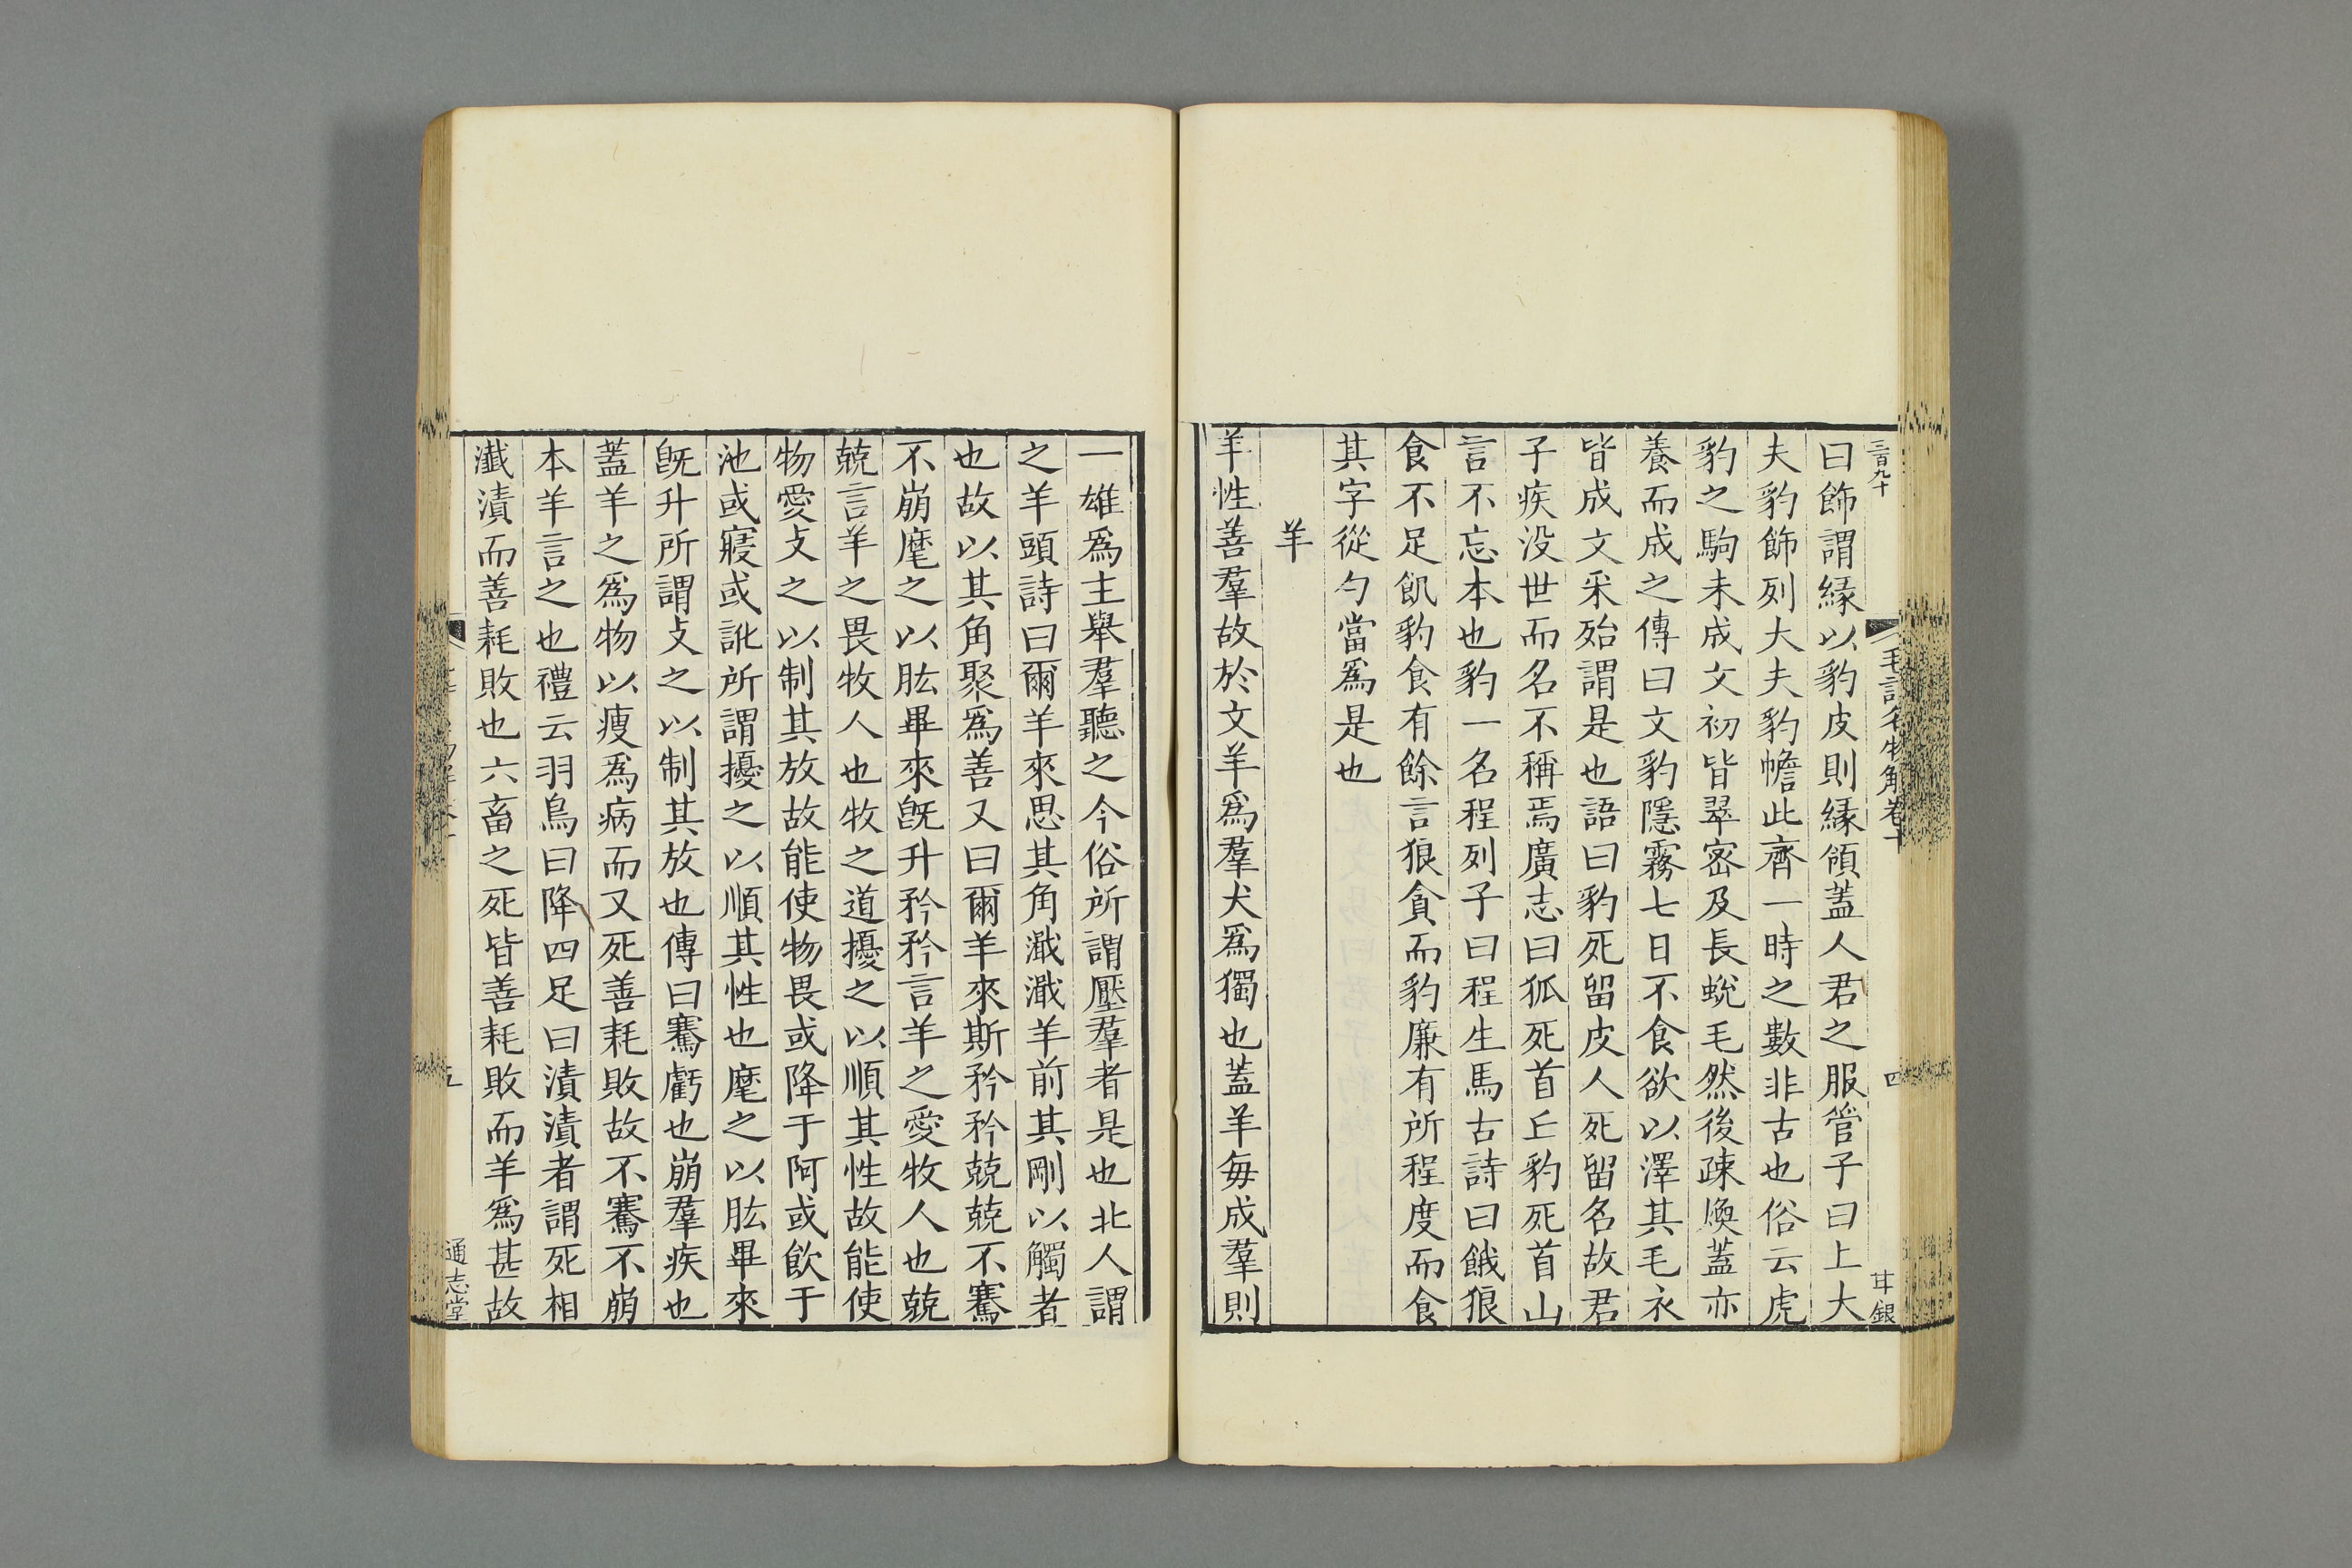 三百九十
毛詩名物解卷十
四
甘銀
曰飾謂緣以豹皮則緣領蓋人君之服管子曰上大
夫豹飾列大夫豹幨此齊一時之數非古也俗云虎
豹之駒未成文初皆翠密及長蛻毛然後疎煥蓋亦
養而成之傳曰文豹隱霧七日不食欲以澤其毛衣
皆成文采殆謂是也語曰豹死留皮人死留名故君
子疾沒世而名不稱焉廣志曰狐死首丘豹死首山
言不忘本也豹一名程列子曰程生馬古詩曰餓狼
食不足飢豹食有餘言狼貪而豹廉有所程度而食
其字從勺當爲是也
羊
羊性善羣故於文羊爲羣犬爲獨也蓋羊每成羣則
一雄爲主舉羣聽之今俗所謂壓羣者是也北人謂
之羊頭詩曰爾羊來思其角濈濈羊前其剛以觸者
也故以其角聚爲善又曰爾羊來斯矜矜兢兢不騫
不崩麾之以肱畢來旣升矜矜言羊之愛牧人也兢
兢言羊之畏牧人也牧之道擾之以順其性故能使
物愛攴之以制其放故能使物畏或降于阿或飲于
池或寢或訛所謂擾之以順其性也麾之以肱畢來
旣升所謂攴之以制其放也傳曰騫虧也崩羣疾也
蓋羊之爲物以瘦爲病而又死善耗敗故不騫不崩
本羊言之也禮云羽鳥曰降四足曰漬漬者謂死相
瀸漬而善耗敗也六畜之死皆善耗敗而羊爲甚故
五
通志堂